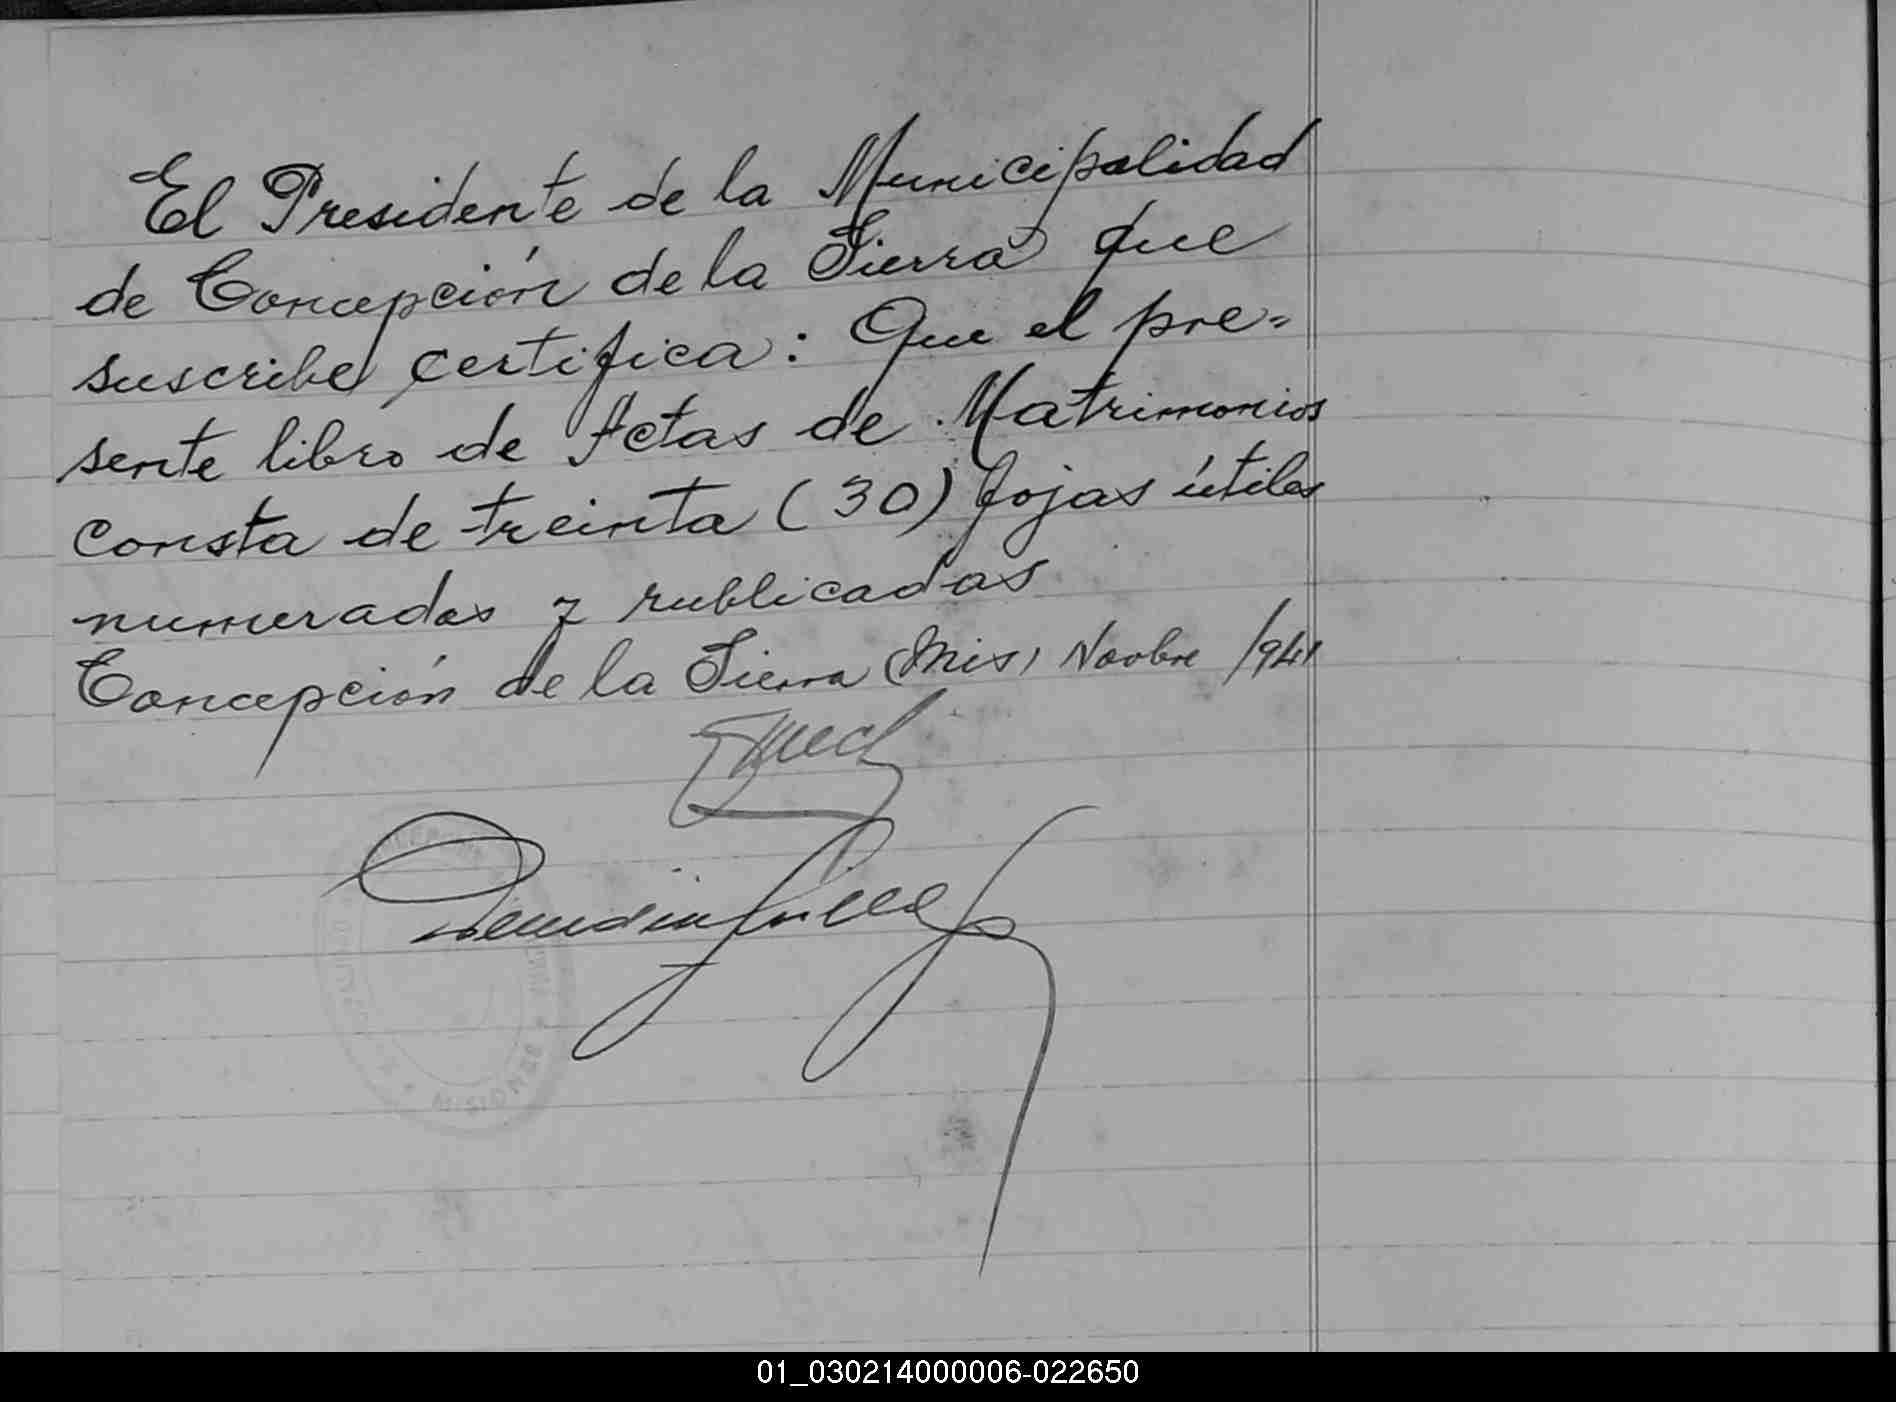 El Presidente de la Municipalidad
de Concepción de la Sierra que
suscribe certifica: Que el pre=
sente libro de Actas de Matrimonios
consta de treinta (30) fojas útiles
numeradas y rublicadas
Concepción de la Sierra (Mis) Novbre /941
MISIONES
01_030214000006-022650